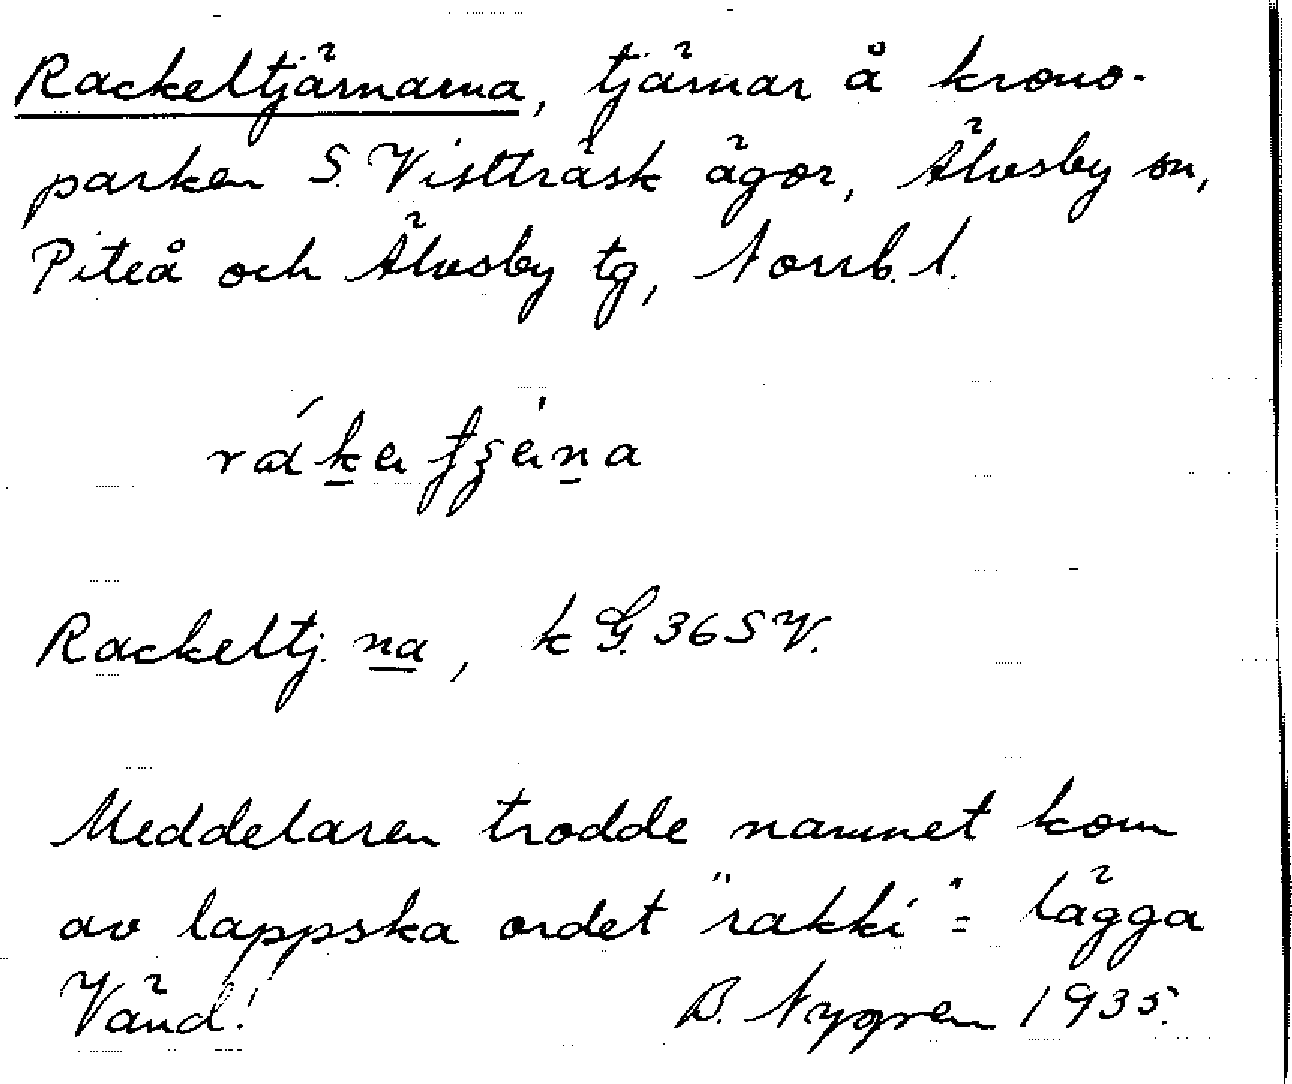 Rackeltjärnarna, tjärnar å krono-
parken S. Vistträsk ägor, Älvsby sn,
Piteå och Älvsby tg, Norrb. l.
Rackeltj. na, k G. 36 S V.
Meddelaren trodde namnet kom
av lappska ordet "rakki" = lägga
Vänd! B. Nygren 1935.